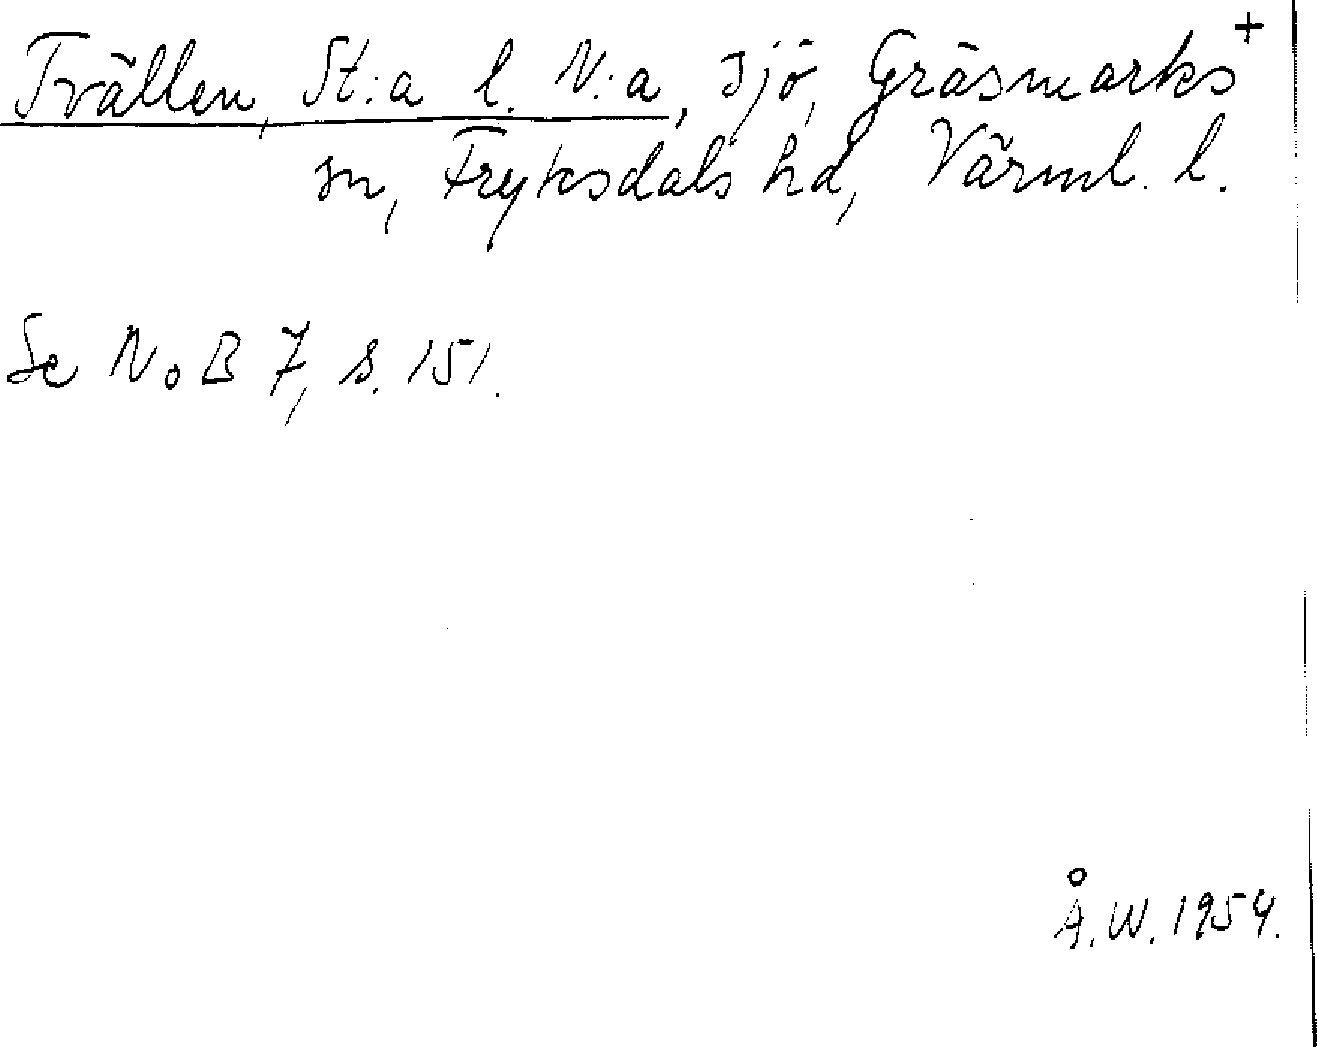 Tvällen, St:a l. N:a, sjö, Gräsmarks +
sn, Fryksdals hd, Värml. l.
Se NoB 7, s. 151.
Å.W. 1954.